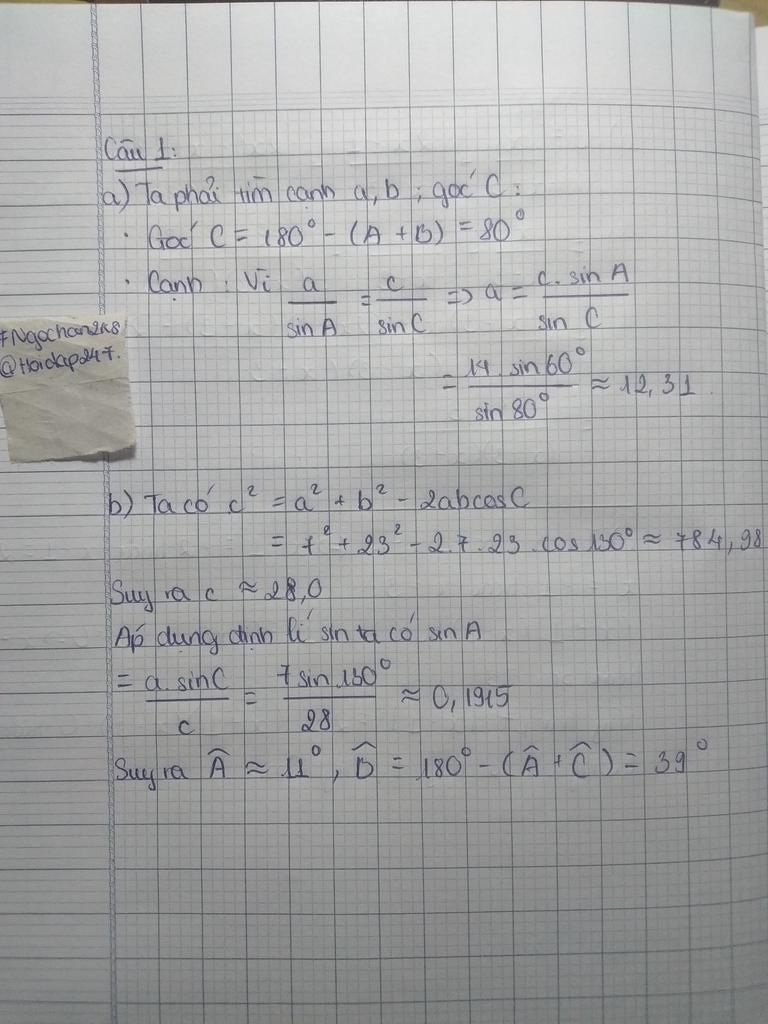 Câu 1:
a) Ta phải tìm cạnh a, b ; góc C :
· Góc C = 180° - (A + B) = 80°
· Cạnh : Vì a/sin A = c/sin C => a = c. sin A/sin C
#Ngochan2k8
@Hoidap247.
= 14 sin 60°/sin 80° ≈ 12,31
b) Ta có c² = a² + b² - 2abcosC
= 7² + 23² - 2.7.23.cos 130° ≈ 784,98
Suy ra c ≈ 28,0
Áp dụng định lí sin ta có sin A
= a.sinC/c = 7sin.130°/28 ≈ 0,1915
Suy ra Â ≈ 11°, B̂ = 180° - (Â + Ĉ) = 39°